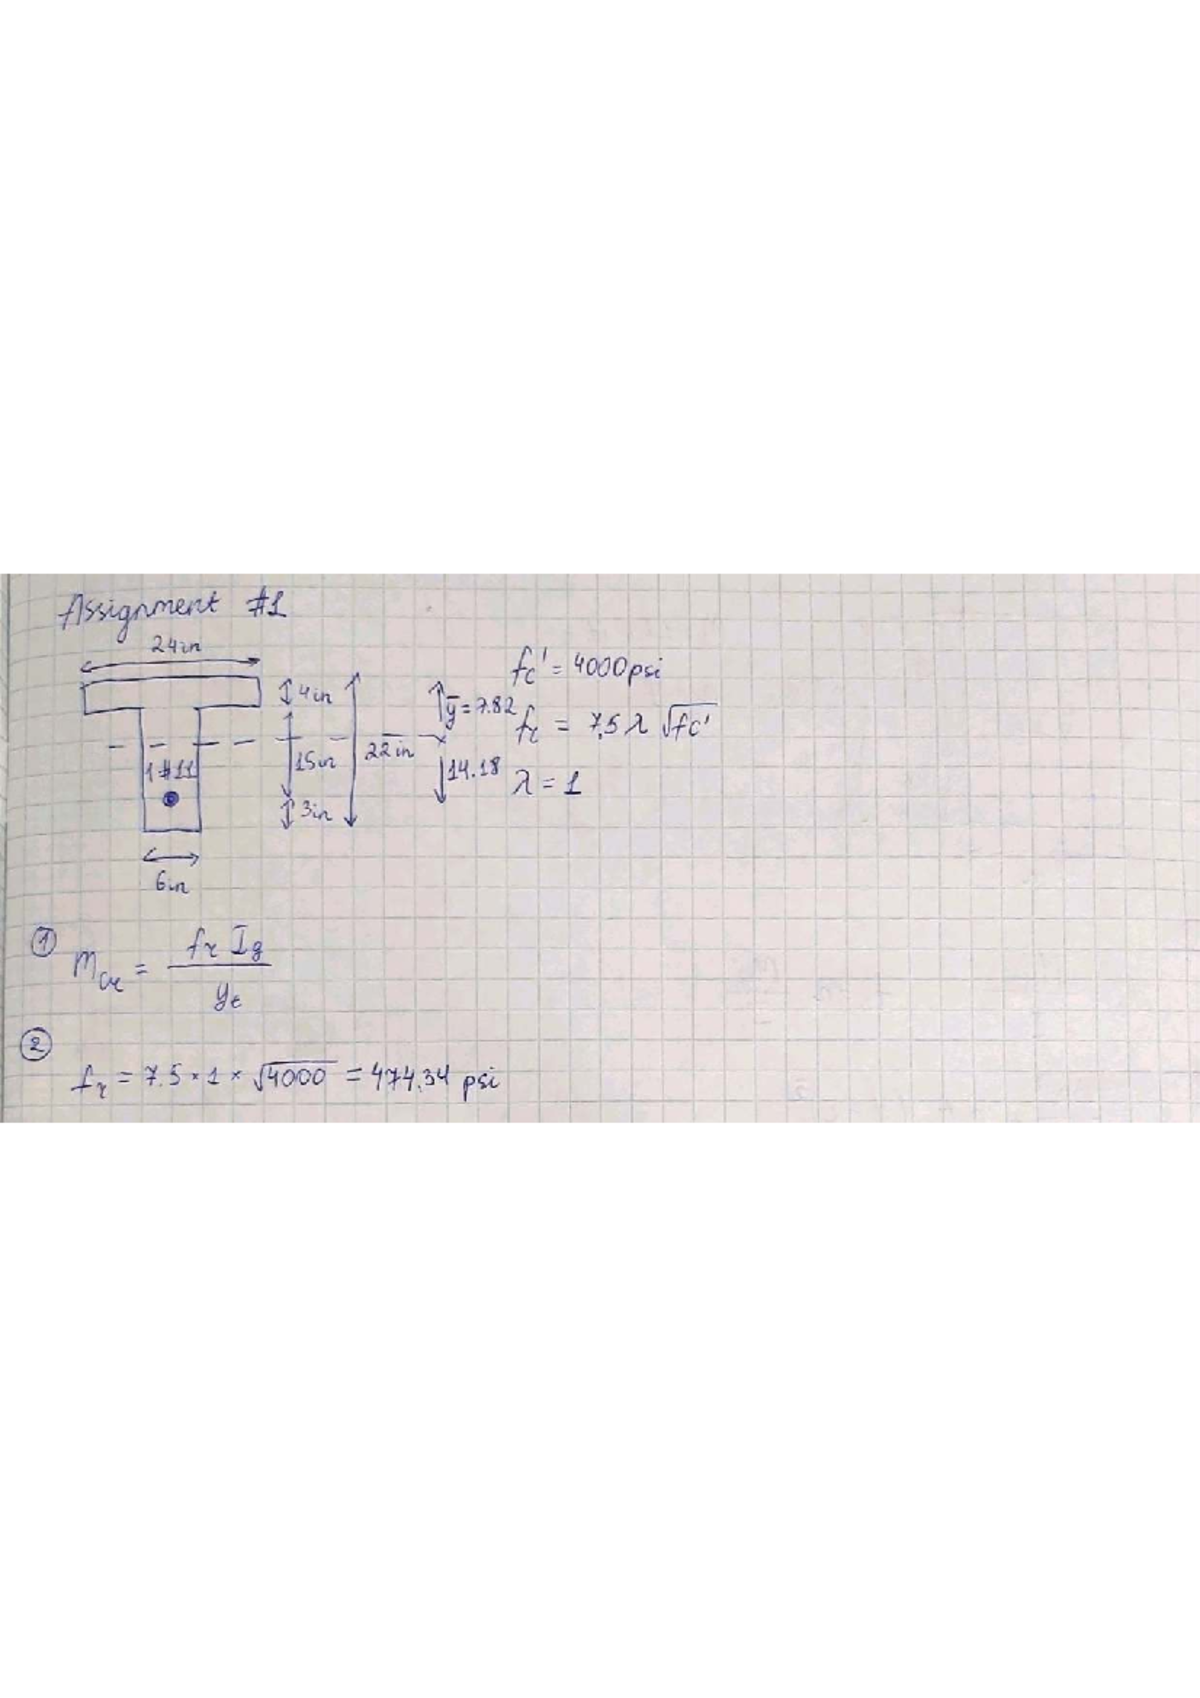 Assignment #1
24in
4in
ȳ = 7.82
22in
15in
14.18
1#11
3in
6in
fc' = 4000psi
fr = 7.5 λ √fc'
λ = 1
①
Mcr = fr Ig / yt
②
fr = 7.5 × 1 × √4000 = 474.34 psi